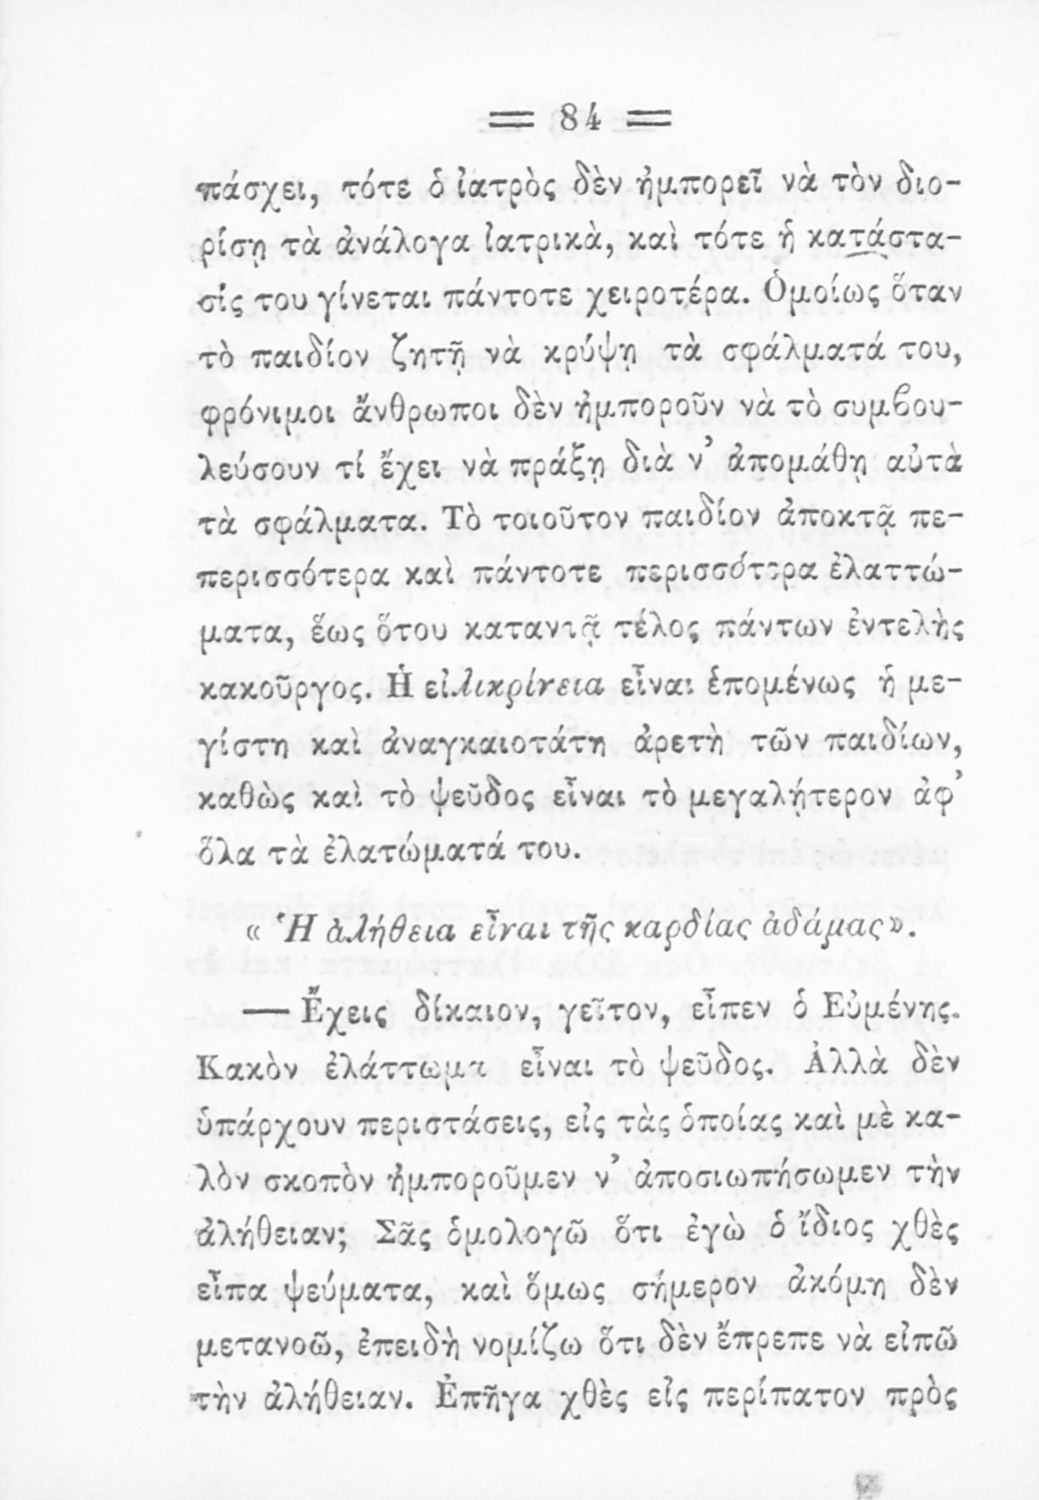 ═ 84 ═
πάσχει, τότε ὁ ἰατρὸς δὲν ἠμπορεῖ νὰ τὸν διο-
ρίσῃ τὰ ἀνάλογα ἰατρικὰ, καὶ τότε ἡ κατάστα-
σίς του γίνεται πάντοτε χειροτέρα. Ὁμοίως ὅταν
τὸ παιδίον ζητῇ νὰ κρύψῃ τὰ σφάλματά του,
φρόνιμοι ἄνθρωποι δὲν ἠμποροῦν νὰ τὸ συμϐου-
λεύσουν τί ἔχει νὰ πράξῃ διὰ ν’ ἀπομάθῃ αὐτὰ
τὰ σφάλματα. Τὸ τοιοῦτον παιδίον ἀποκτᾷ πε-
περισσότερα καὶ πάντοτε περισσότερα ἐλαττώ-
ματα, ἕως ὅτου καταντᾷ τέλος πάντων ἐντελὴς
κακοῦργος. Ἡ εἰλικρίνεια εἶναι ἑπομένως ἡ με-
γίστη καὶ ἀναγκαιοτάτη ἀρετὴ τῶν παιδίων,
καθὼς καὶ τὸ ψεῦδος εἶναι τὸ μεγαλήτερον ἀφ’
ὅλα τὰ ἐλατώματά του.
« Ἡ ἀλήθεια εἶναι τῆς καρδίας ἀδάμας».
— Ἔχεις δίκαιον, γεῖτον, εἶπεν ὁ Εὐμένης.
Κακὸν ἐλάττωμα εἶναι τὸ ψεῦδος. Ἀλλὰ δὲν
ὑπάρχουν περιστάσεις, εἰς τὰς ὁποίας καὶ μὲ κα-
λὸν σκοπὸν ἠμποροῦμεν ν’ ἀποσιωπήσωμεν τὴν
ἀλήθειαν; Σᾶς ὁμολογῶ ὅτι ἐγὼ ὁ ἴδιος χθὲς
εἶπα ψεύματα, καὶ ὅμως σήμερον ἀκόμη δὲν
μετανοῶ, ἐπειδὴ νομίζω ὅτι δὲν ἔπρεπε νὰ εἰπῶ
τὴν ἀλήθειαν. Ἐπῆγα χθὲς εἰς περίπατον πρὸς